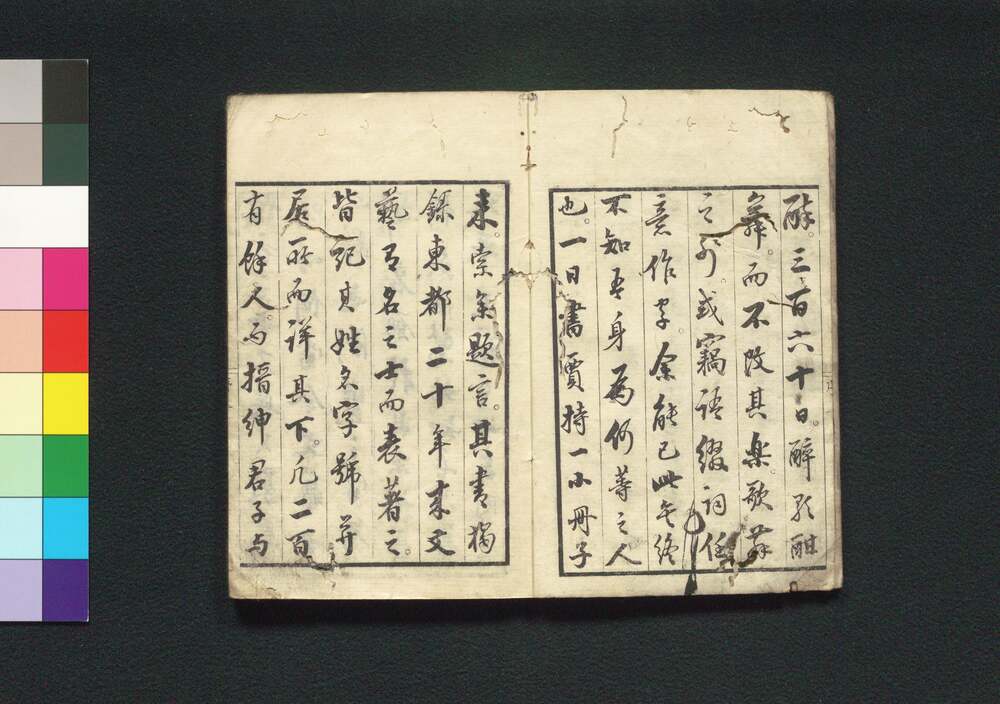 酔。三百六十日。醉歌酣
舞。而不改其楽。歌舞
之外。或竊語綴詞任
意作字。余能已此矣終
不知吾身為何等之人
也。一日書賈持一小冊子
来。索余題言。其書搨
録東都二十年来文
藝有名之士而表著之。
皆記其姓名字號并
居所而詳其下。凡二百
有餘人。而搢紳君子与